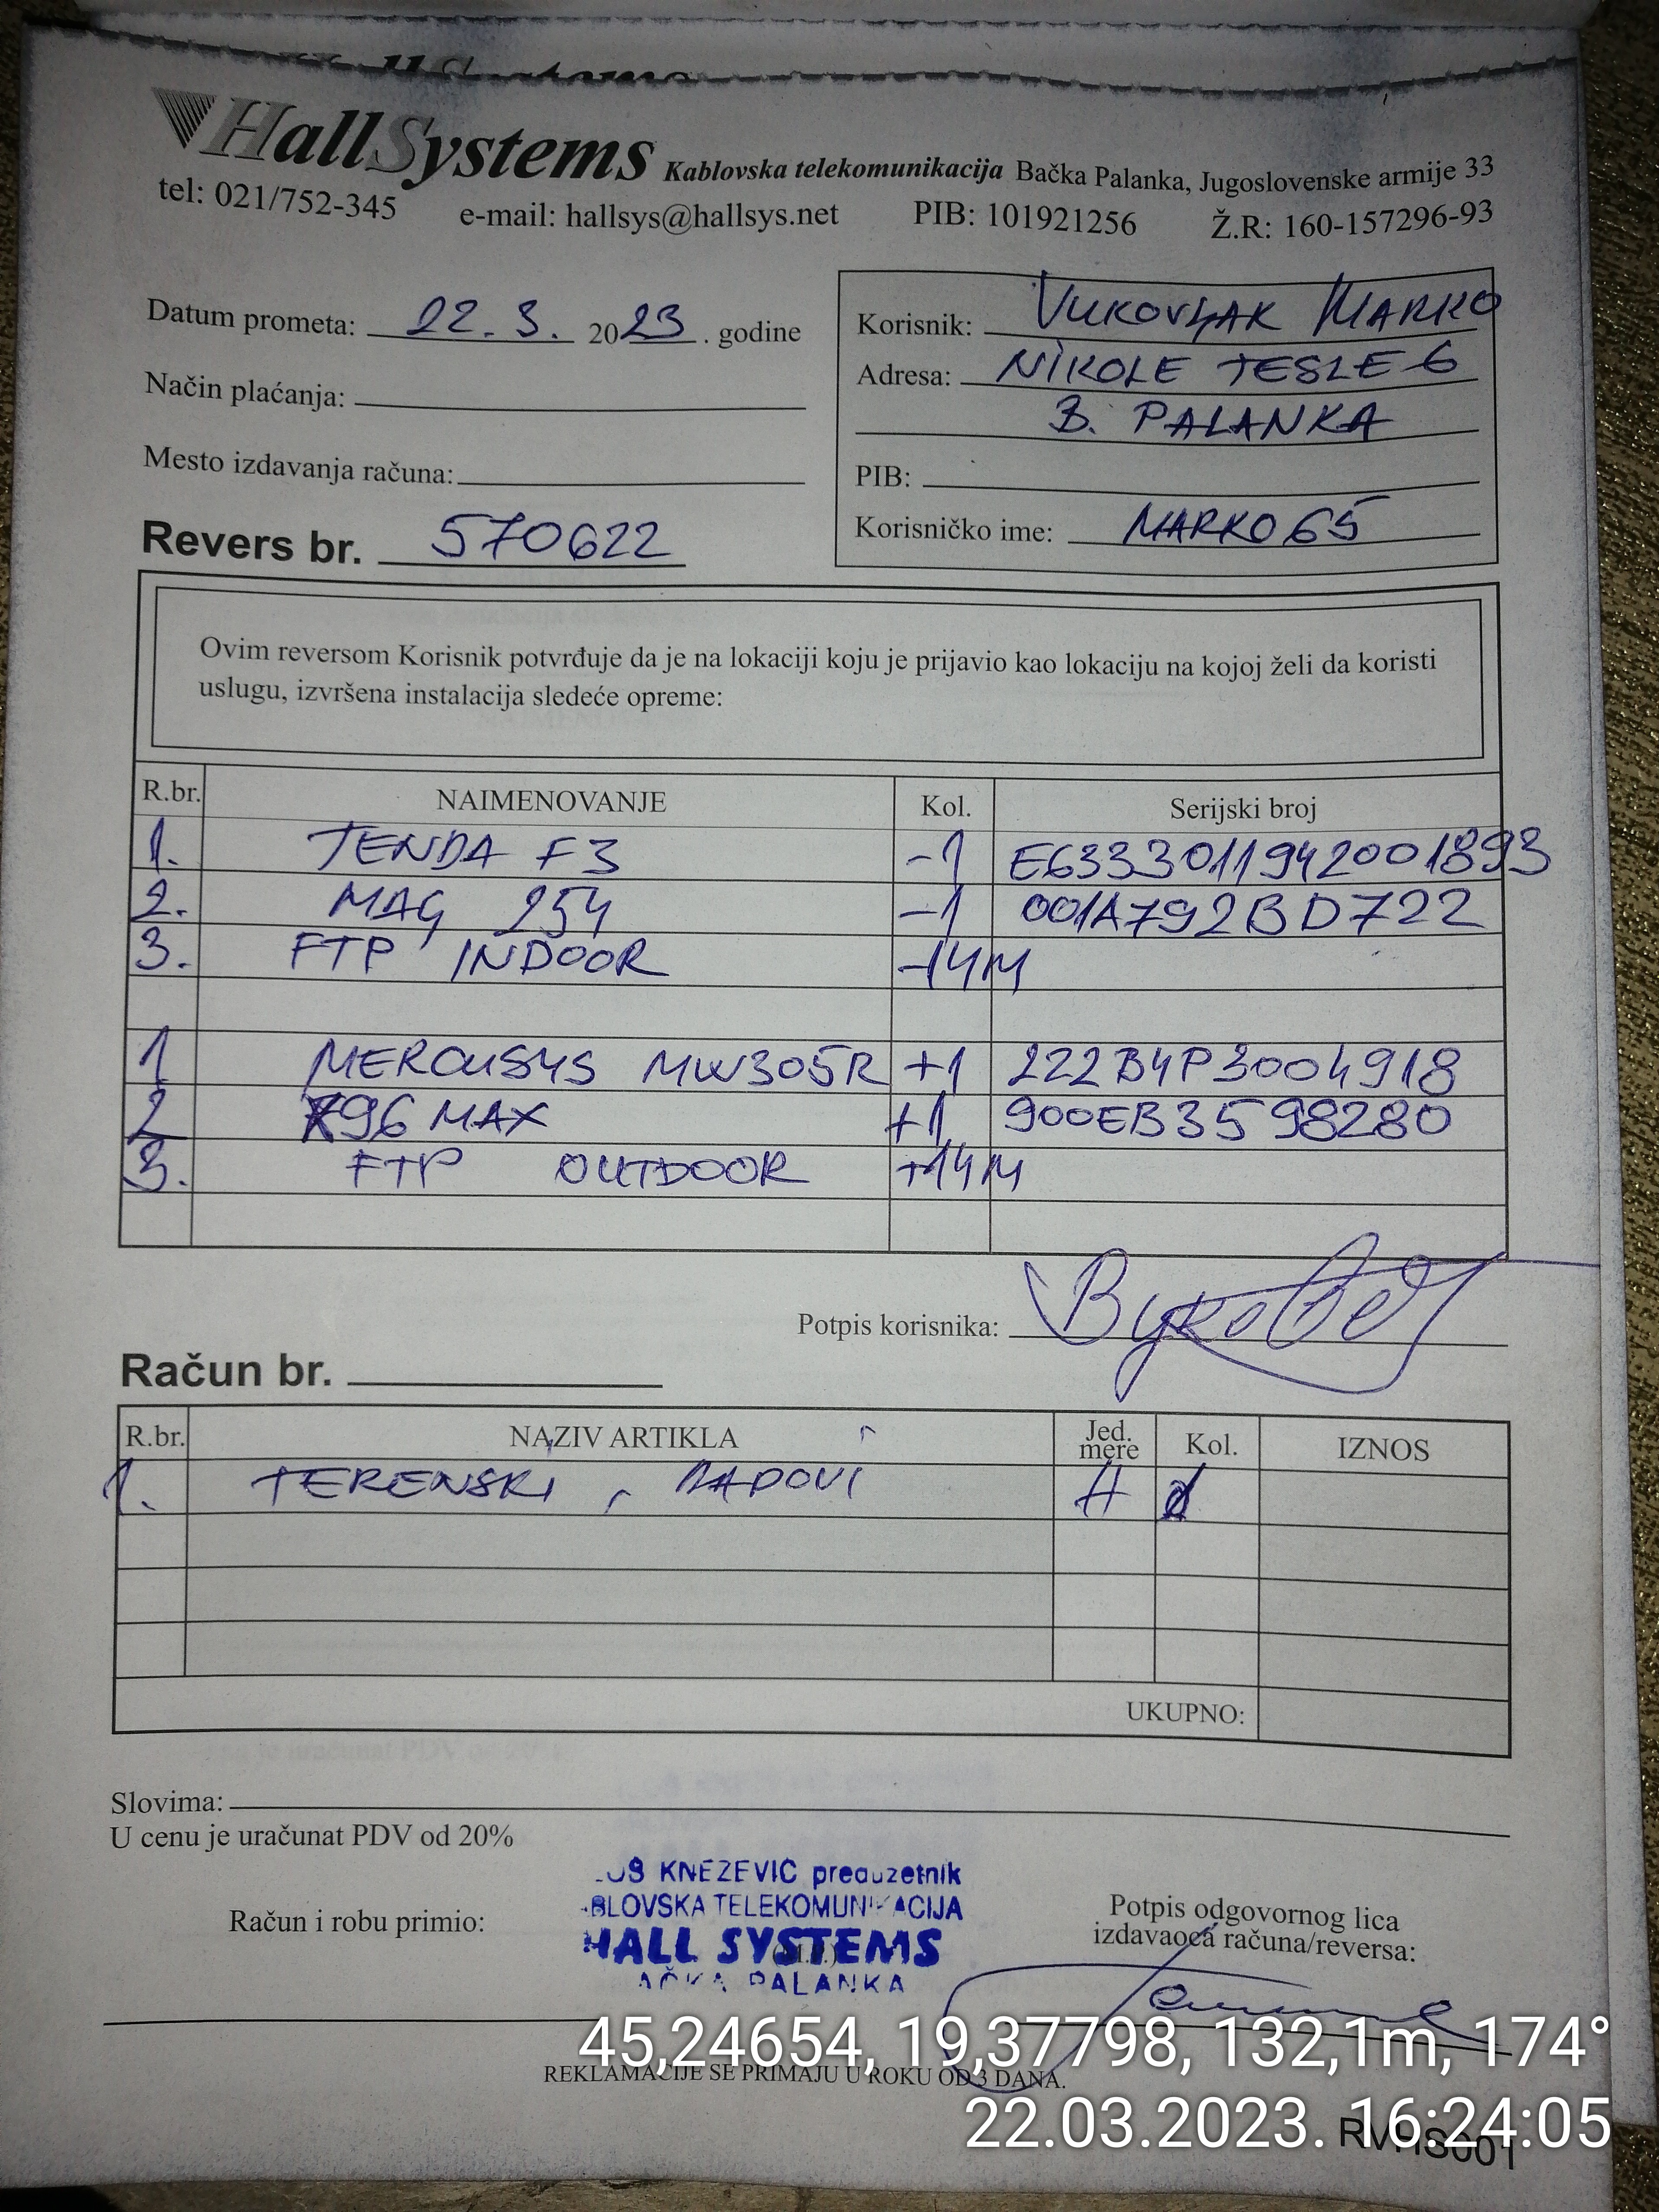 HallSystems Kablovska telekomunikacija Bačka Palanka, Jugoslovenske armije 33
tel: 021/752-345 e-mail: hallsys@hallsys.net PIB: 101921256 Ž.R: 160-157296-93
Datum prometa: 22. 3. 2023. godine
Način plaćanja:
Mesto izdavanja računa:
Revers br. 570622
Korisnik: VUKOVLJAK MARKO
Adresa: NIKOLE TESLE 6
B. PALANKA
PIB:
Korisničko ime: MARKO65
Ovim reversom Korisnik potvrđuje da je na lokaciji koju je prijavio kao lokaciju na kojoj želi da koristi
uslugu, izvršena instalacija sledeće opreme:
R.br. NAIMENOVANJE Kol. Serijski broj
1. TENDA F3 -1 E6333011942001893
2. MAG 254 -1 001A792BD722
3. FTP INDOOR -14M
1 MERCUSYS MW305R +1 222B4P3004918
2 X96 MAX +1 900EB3598280
3. FTP OUTDOOR +14M
Potpis korisnika:
Račun br.
R.br. NAZIV ARTIKLA Jed. mere Kol. IZNOS
1. TERENSKI RADOVI H
UKUPNO:
Slovima:
U cenu je uračunat PDV od 20%
KNEZEVIC preduzetnik
BLOVSKA TELEKOMUNIKACIJA
HALL SYSTEMS
AČKA PALANKA
Račun i robu primio:
Potpis odgovornog lica
izdavaoca računa/reversa:
45,24654, 19,37798, 132,1m, 174°
REKLAMACIJE SE PRIMAJU U ROKU OD 3 DANA.
22.03.2023. 16:24:05
RVHS001